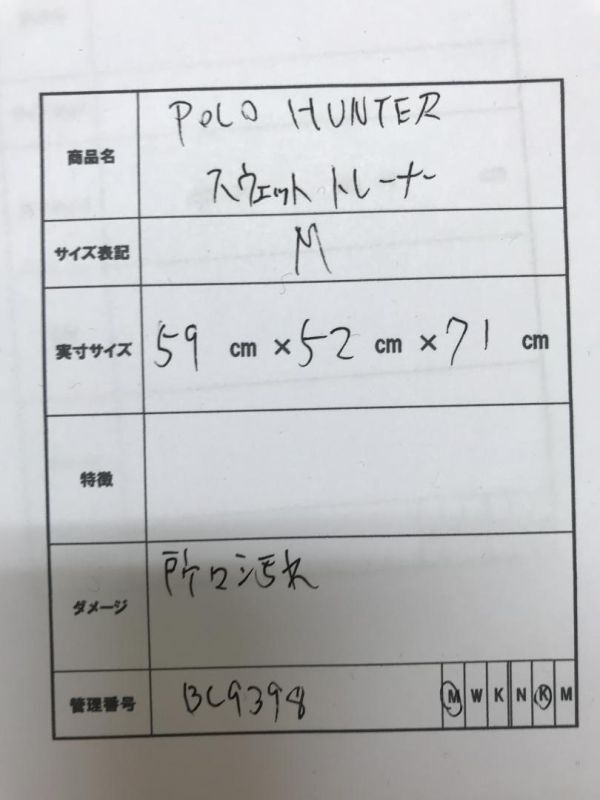 商品名 POLO HUNTER
スウェット トレーナー
サイズ表記 M
実寸サイズ 59 cm ×52 cm ×71 cm
特徴
ダメージ 所々汚れ
管理番号 BC9398 M W K N K M